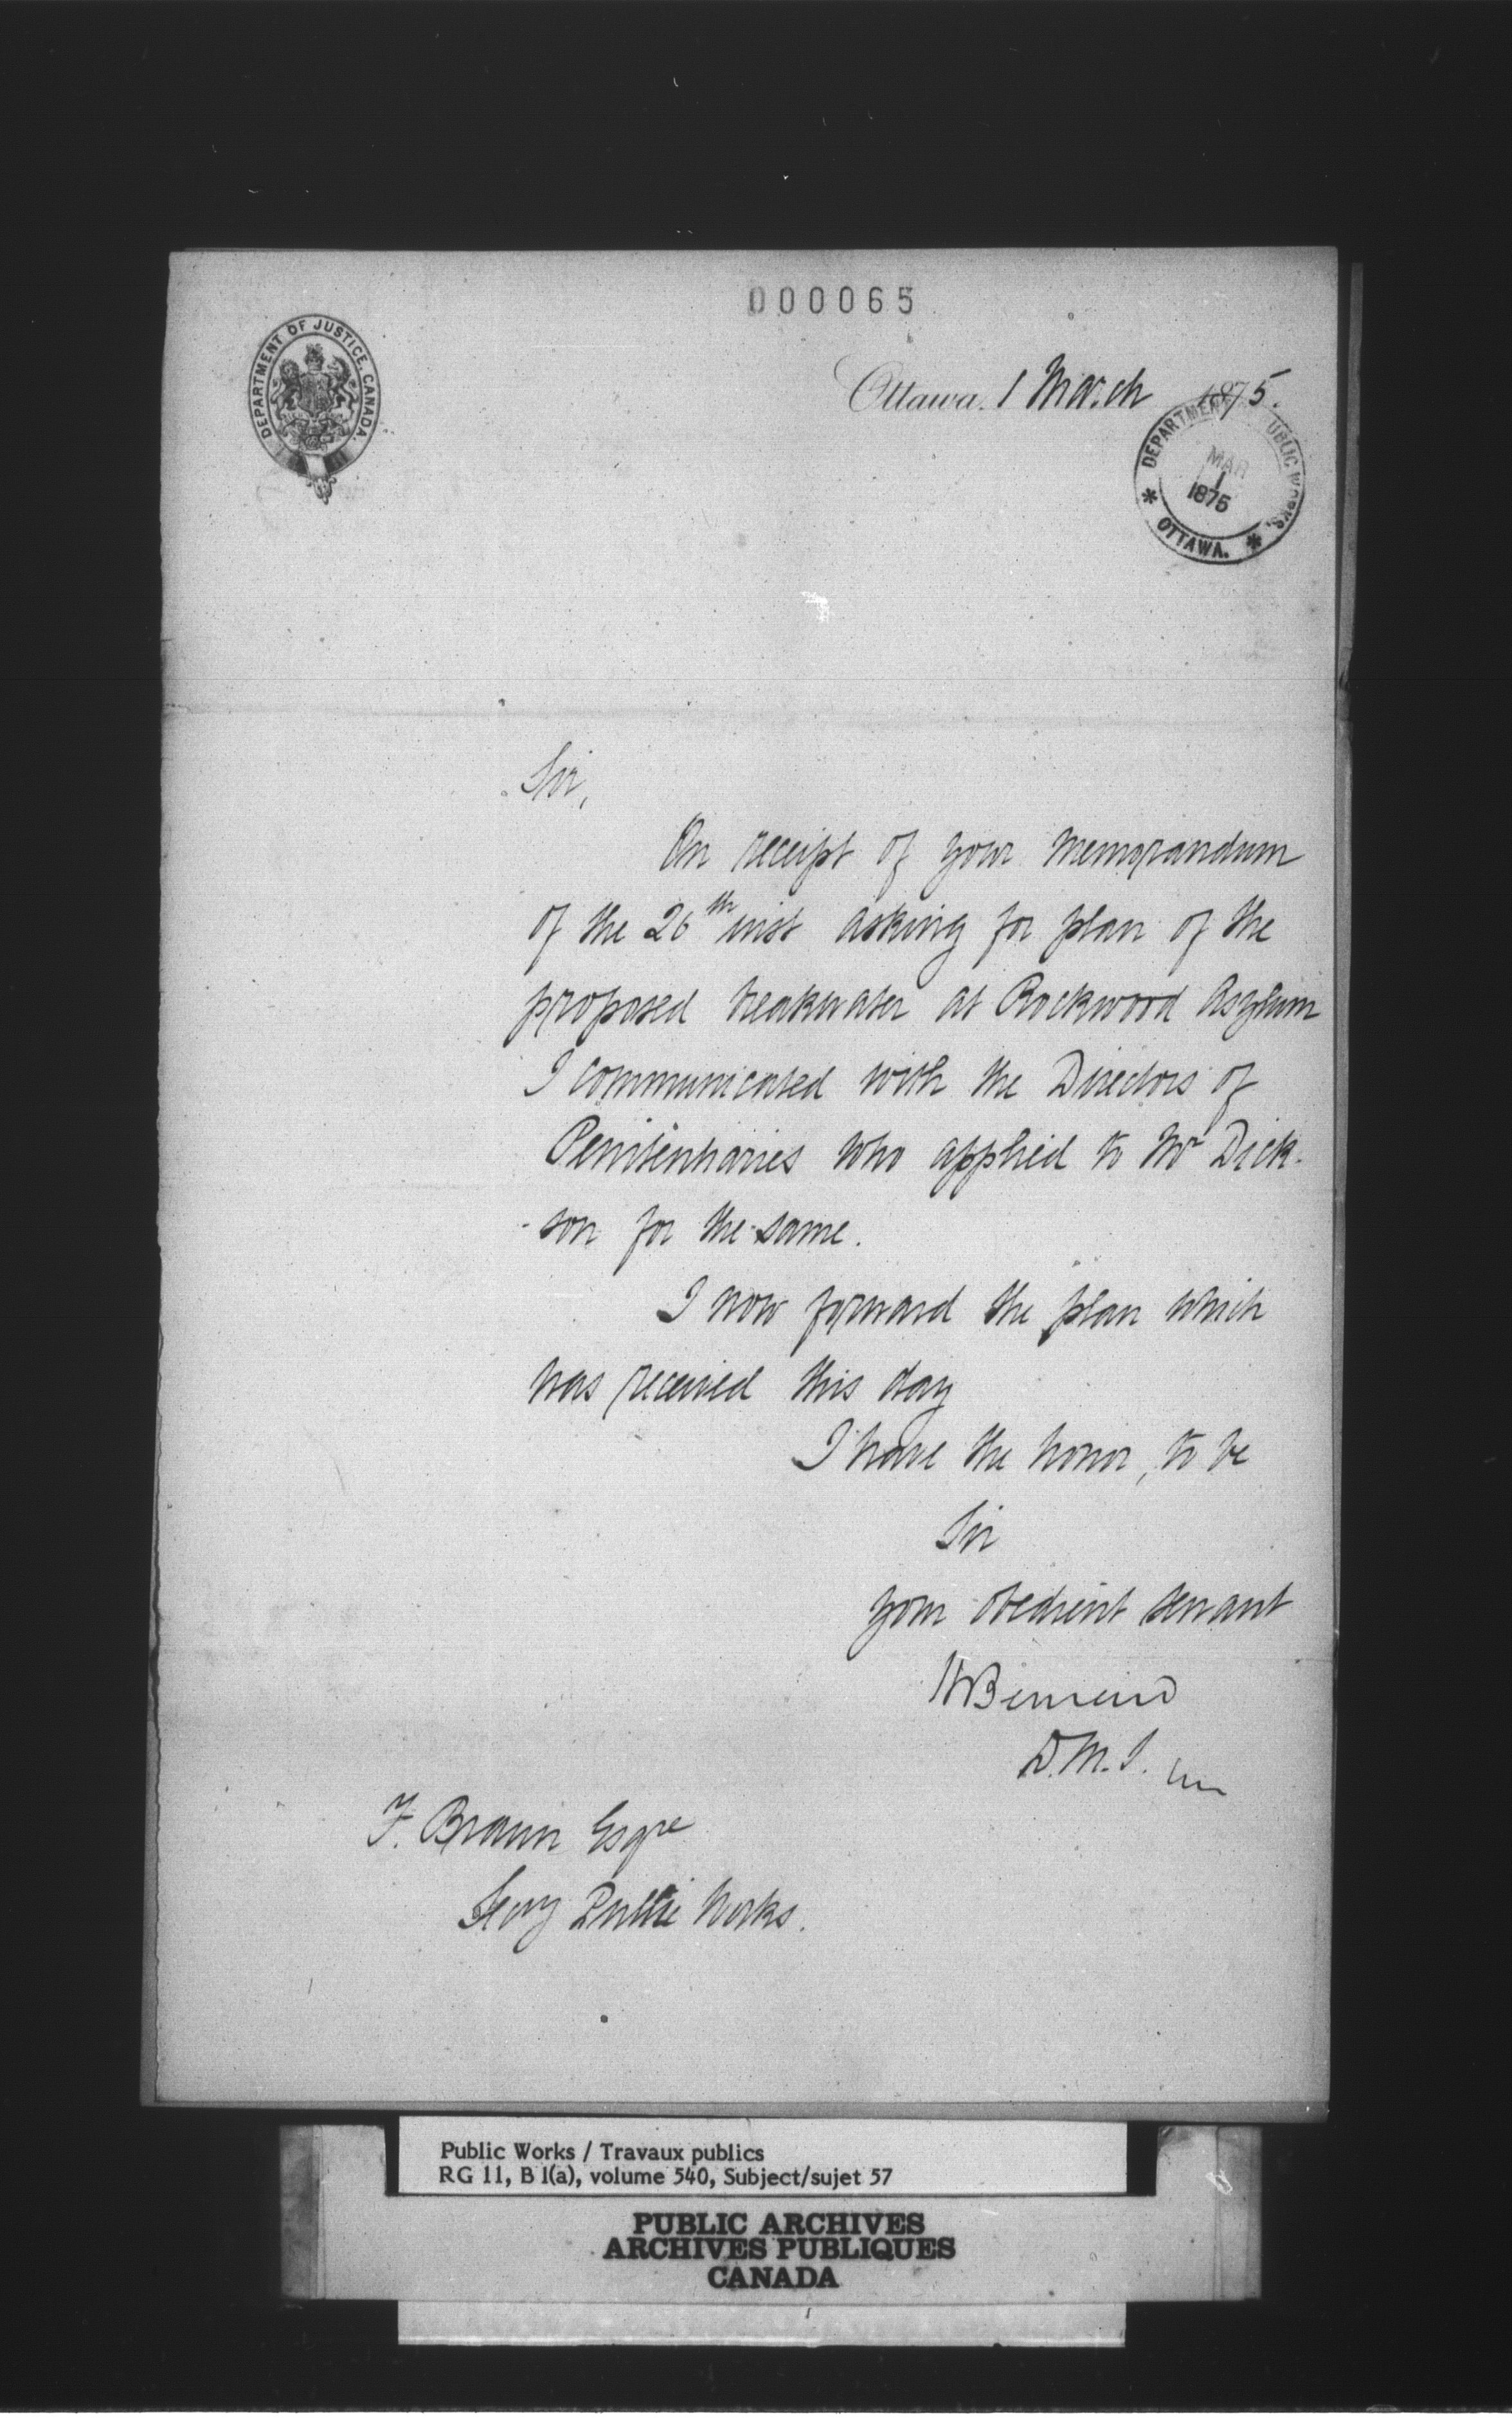 000065
DEPARTMENT OF JUSTICE, CANADA.
Ottawa. 1 March 1875.
DEPARTMENT PUBLIC WORKS.
MAR
1
1875
* OTTAWA. *
Sir,
On receipt of your memorandum
of the 26th inst asking for plan of the
proposed breakwater at Rockwood Asylum
I communicated with the Directors of
Penitentiaries who applied to Mr Dick-
-son for the same.
I now forward the plan which
was received this day
I have the honor, to be
Sir
your obedient servant
H Bernard
D.M.J.
F. Braun Esqre
Secy Public Works.
Public Works / Travaux publics
RG 11, B 1(a), volume 540, Subject/sujet 57
PUBLIC ARCHIVES
ARCHIVES PUBLIQUES
CANADA